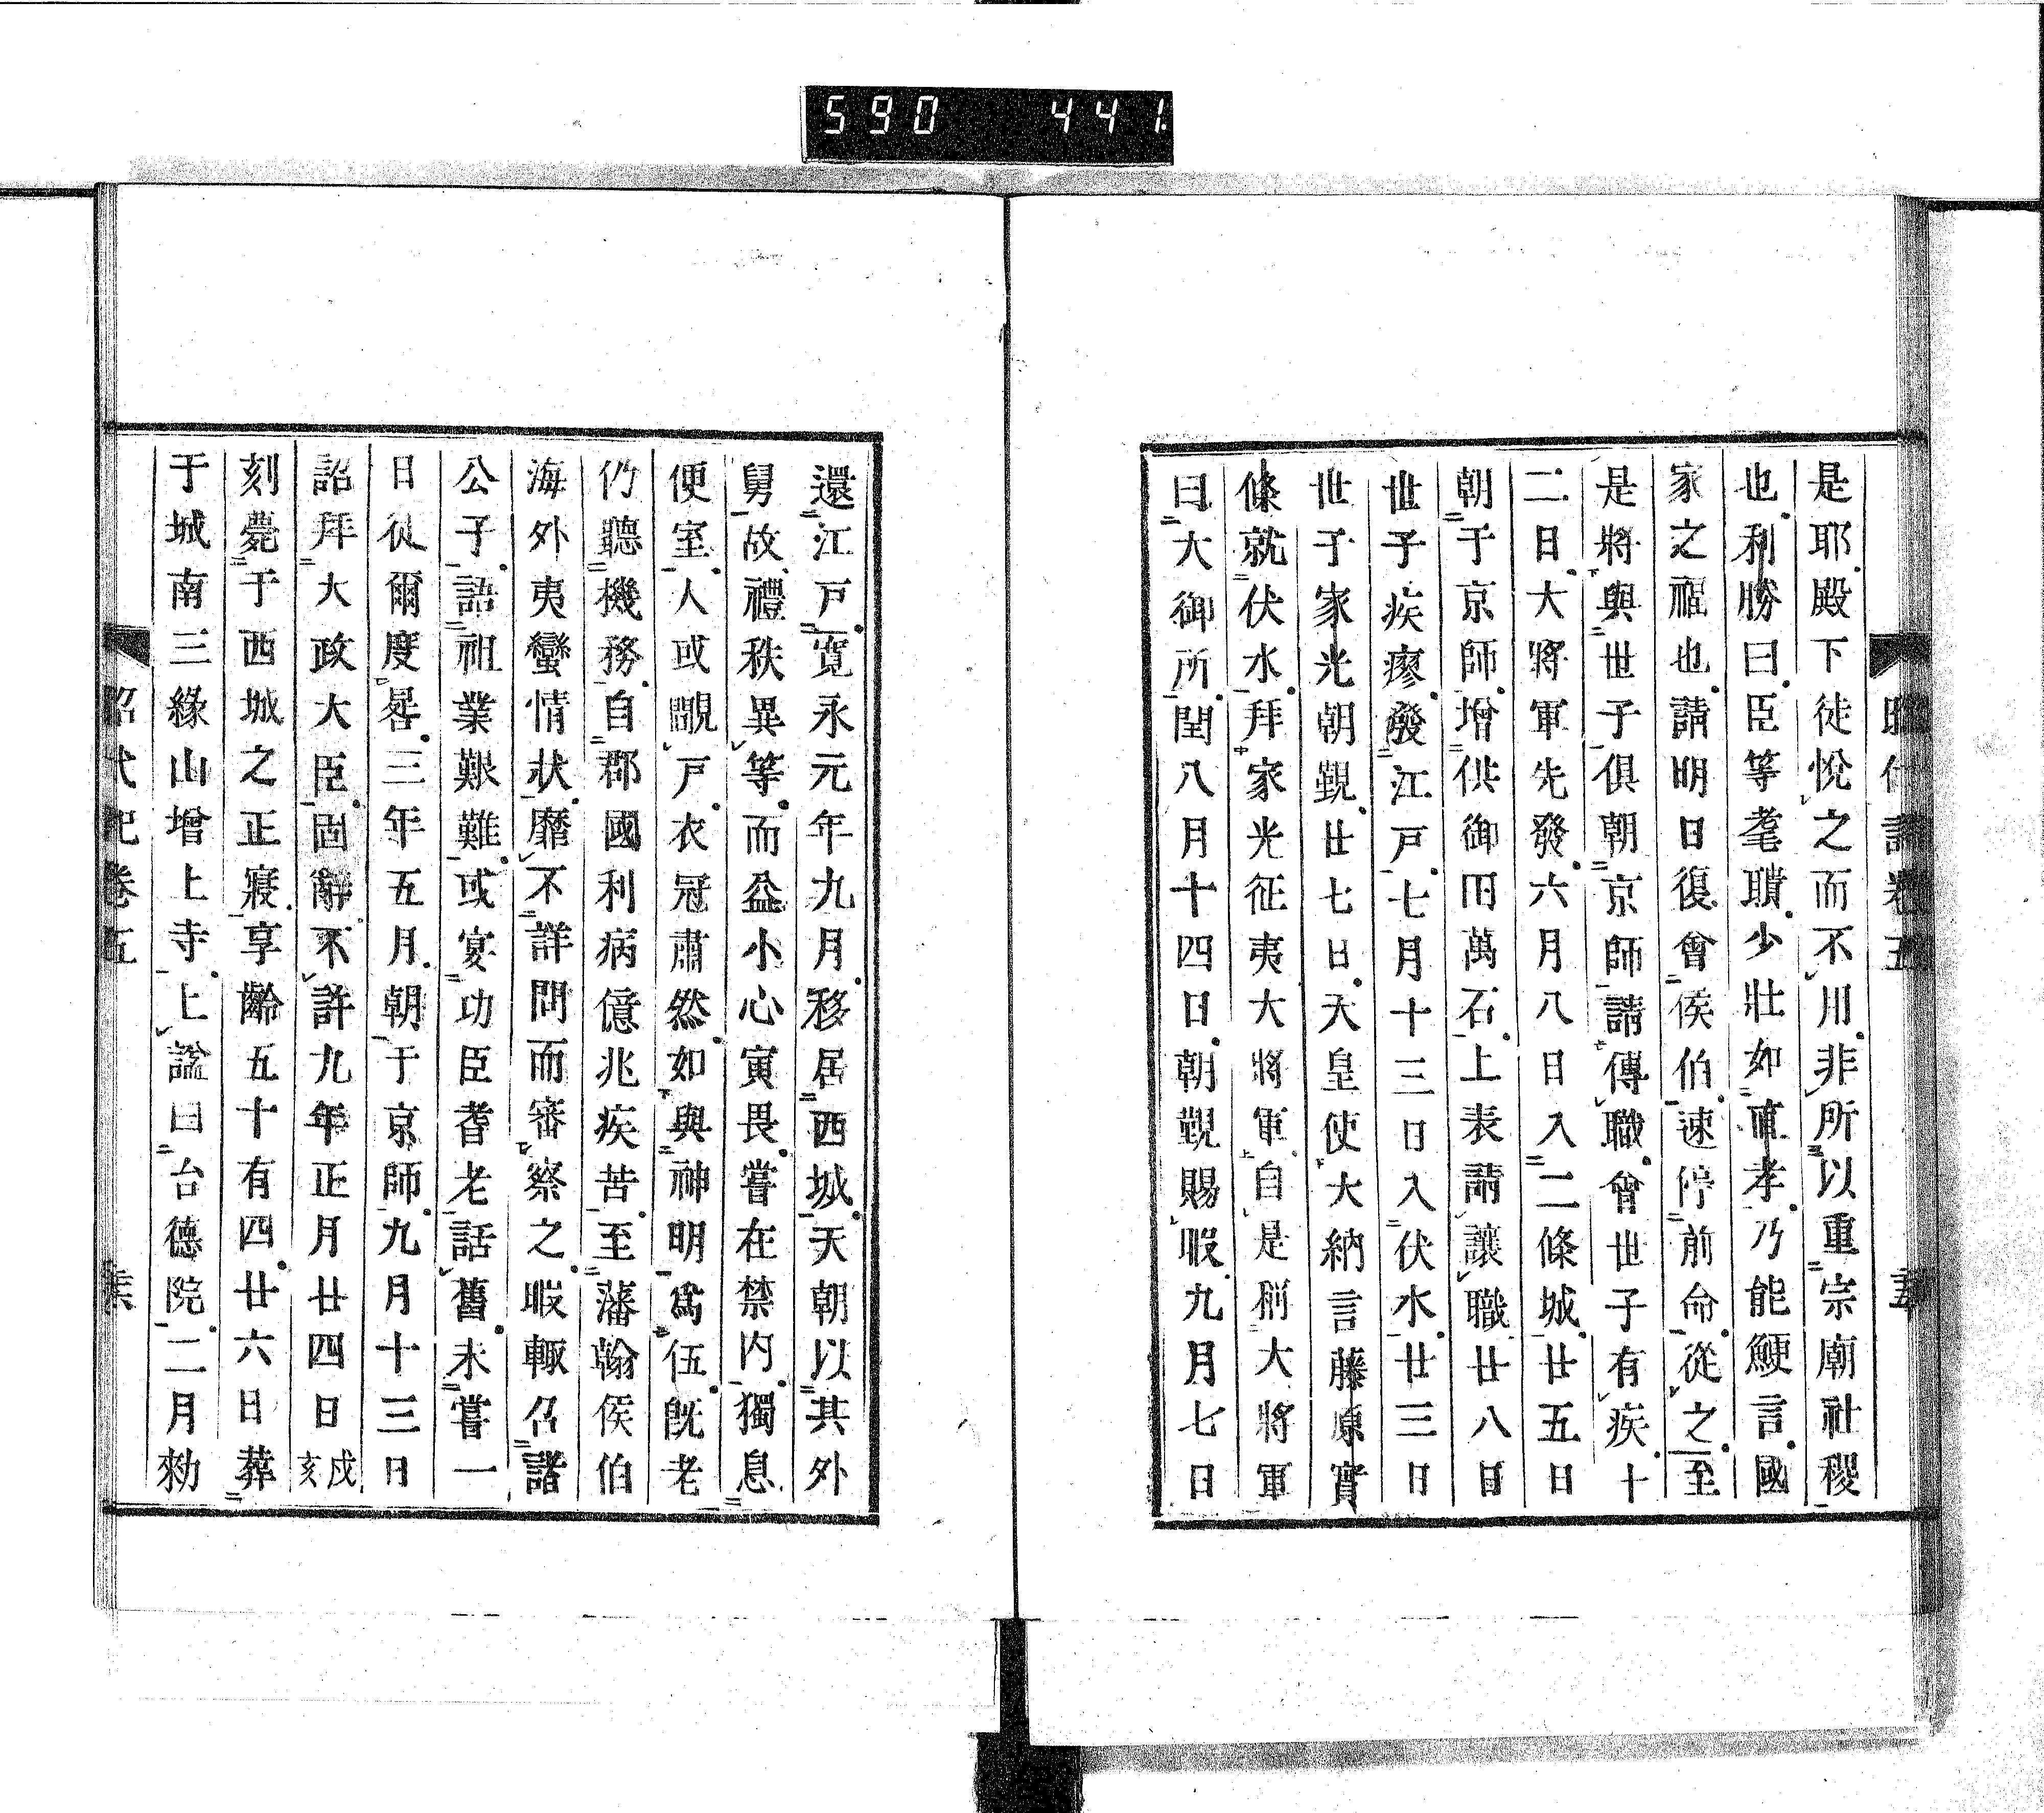 590 441.
是耶殿下徒悅之而不用非所以重宗廟社稷
也利勝曰臣等耄聵少壯如重孝乃能鯁言國
家之福也請明日復會侯伯速停前命從之至
是將與世子俱朝京師請傳職會世子有疾十
二日大將軍先發六月八日入二條城廿五日
朝于京師增供御田萬石上表請讓職廿八日
世子疾瘳發江戸七月十三日入伏水廿三日
世子家光朝覲廿七日天皇使大納言藤原實
條就伏水拜家光征夷大將軍自是稱大將軍
曰大御所閏八月十四日朝覲賜暇九月七日
還江戸寬永元年九月移居西城天朝以其外
舅故禮秩異等而益小心寅畏嘗在禁内獨息
便室人或覸戸衣冠肅然如與神明爲伍旣老
仍聽機務自郡國利病億兆疾苦至藩翰侯伯
海外夷蠻情狀靡不詳問而審察之暇輙召諸
公子語祖業艱難或宴功臣耆老話舊未嘗一
日從爾度晷三年五月朝于京師九月十三日
詔拜大政大臣固辭不許九年正月廿四日戌亥
刻薨于西城之正寢享齡五十有四廿六日葬
于城南三緣山增上寺上諡曰台德院二月勑
卷五